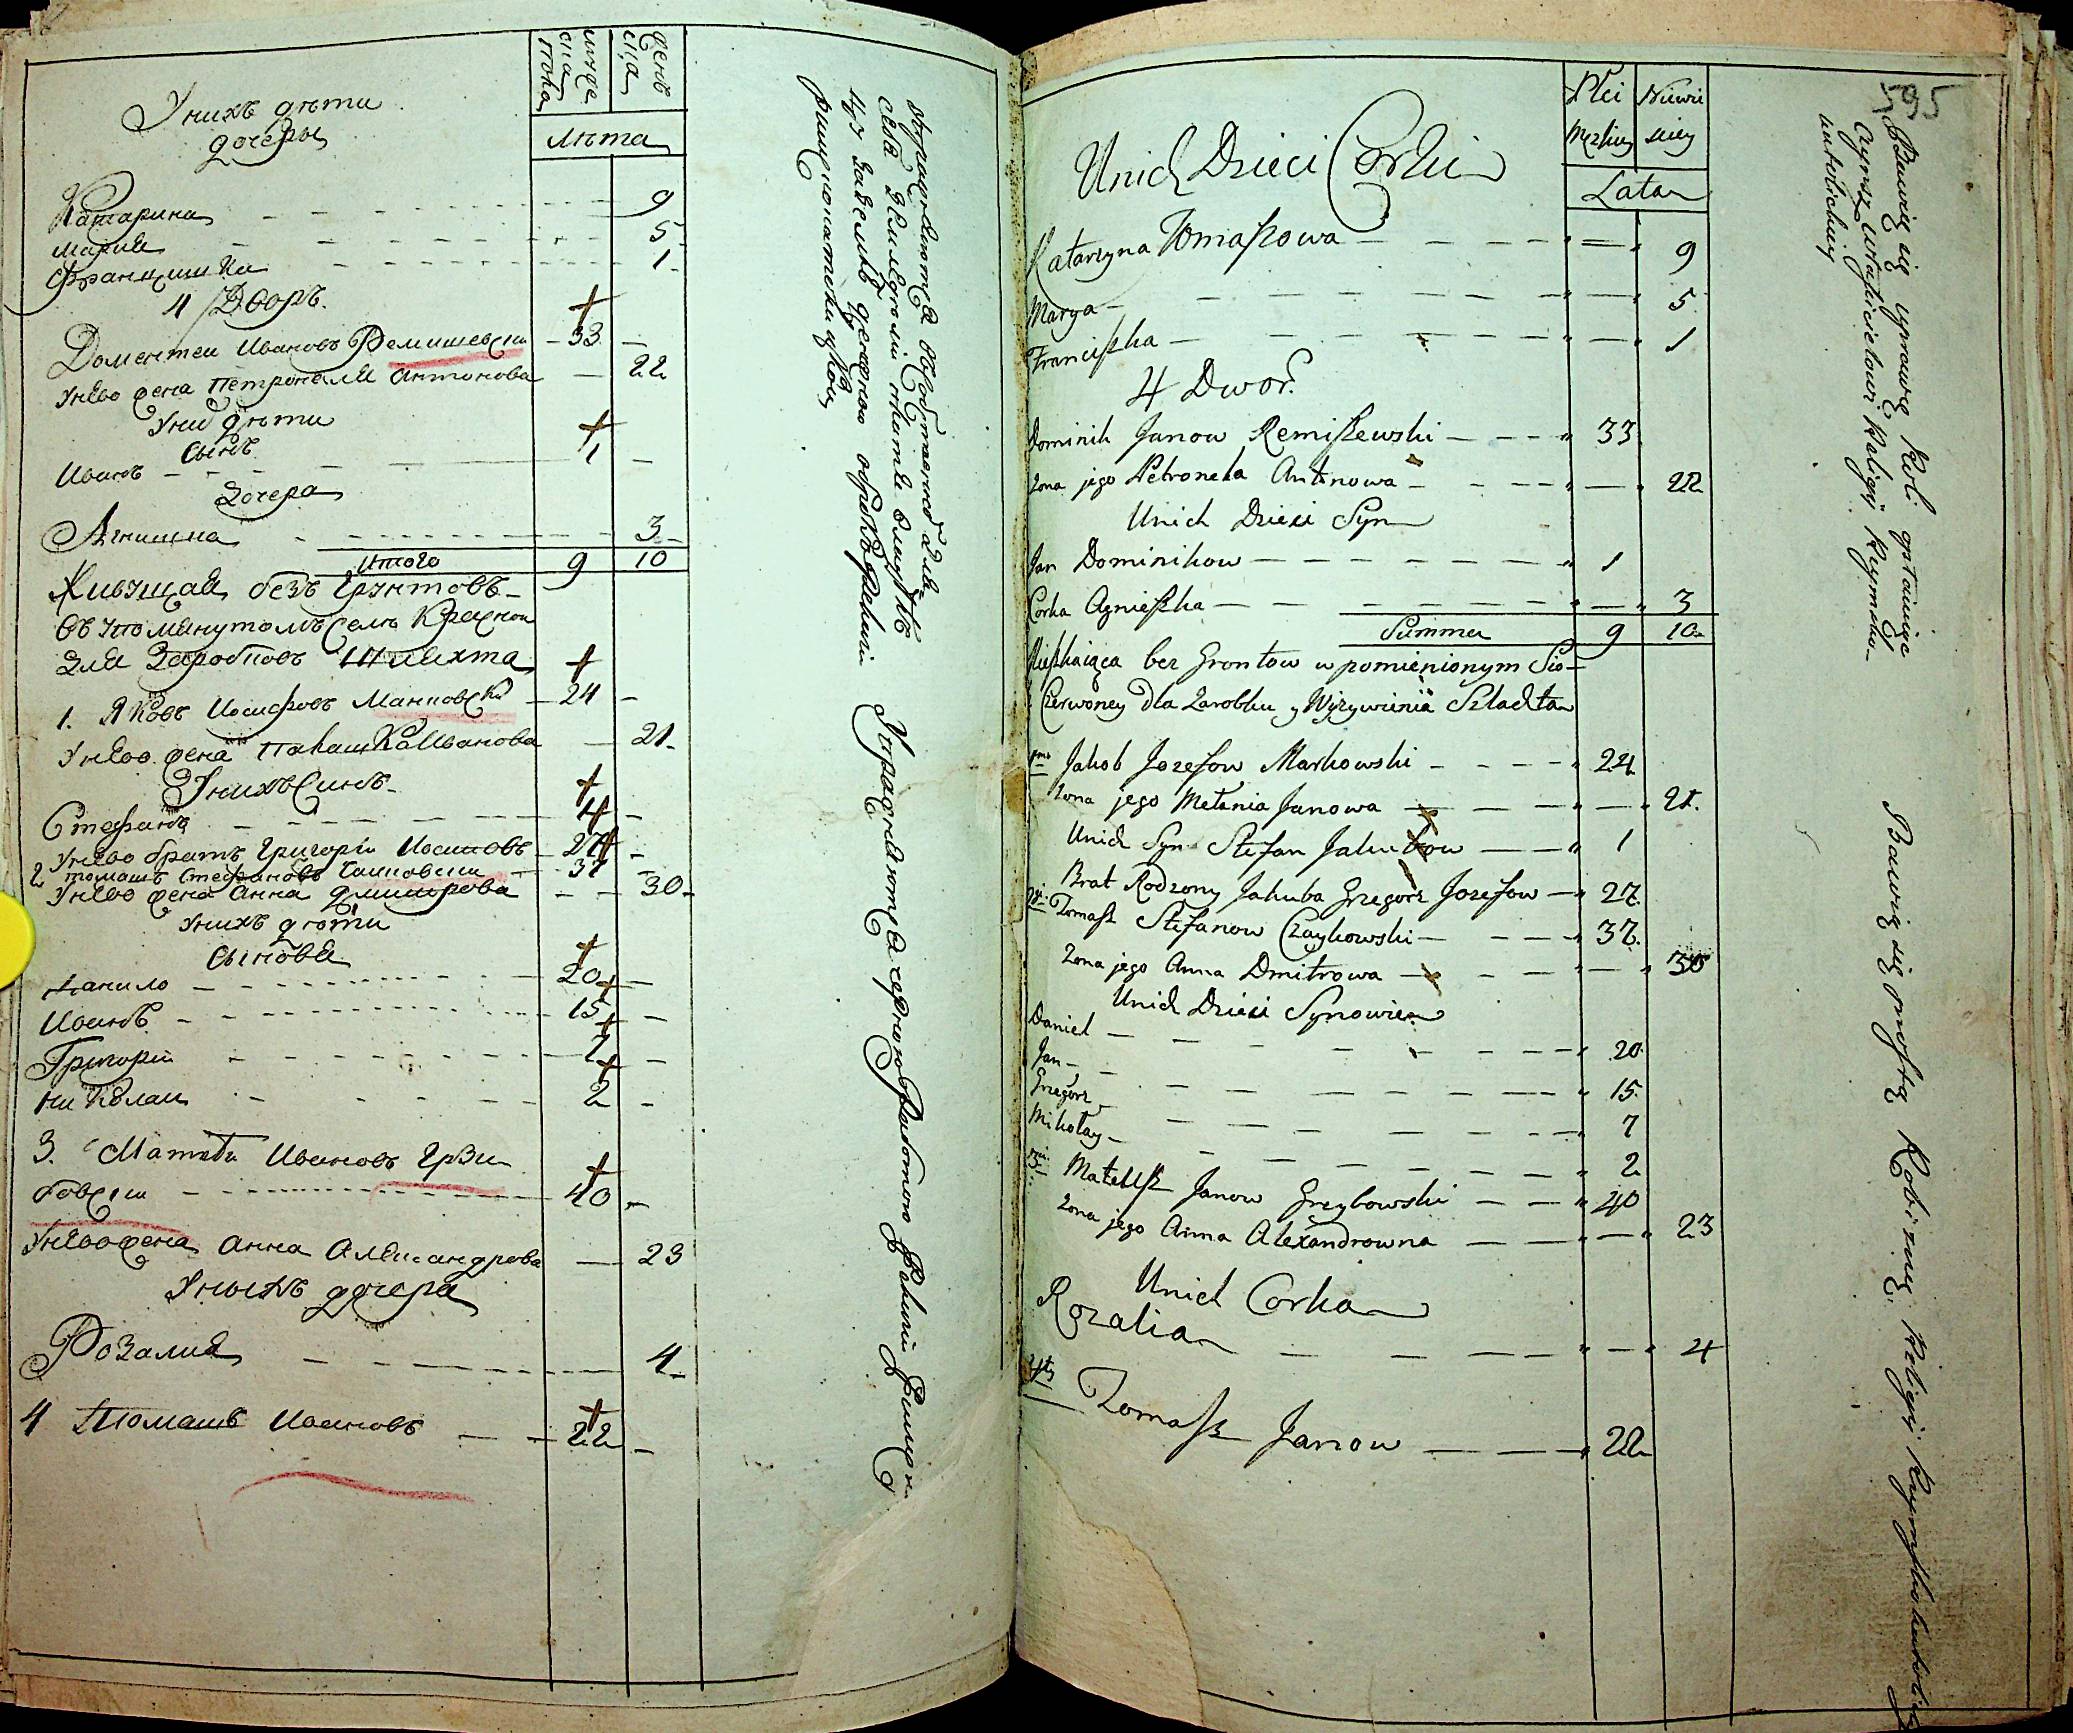 Унихъ дѣти
дочеры
муже
ска
пола
женъ
ска
лѣта
Катарина - - - 9
Мария - - - 5
Францишка - - - 1
4 Дворъ.
Доментеи Ивановъ Ремишевски - 33 -
Унево жена Петронеля Антонова - 22
Уних дѣти
Сынъ
Иванъ - - - 1 -
Дочера
Агнишка - - - 3
Итого 9 10
Живущая безъ Грунтовъ
Въ упомянутомъ Селѣ Красной
для Заробковъ Шляхта
1. Яковъ Иосифовъ Марковски - 24 -
Унево жена Иванова - 21
Унихъ Синъ
Стефанъ - - - 1 -
Унево братъ Григорiи Иосифовъ - 27 -
2 томашъ Стефановъ - 37 -
Унево жена Анна Дмитрова - - 30
Унихъ дѣти
Сынове
Данило - - - 20 -
Иванъ - - - 15 -
Григори - - - 7 -
Николаи - - - 2 -
3. Матеъи Ивановъ Гржи
бовски - - - 40 -
Унево жена Анна Александрова - 23
Унихъ дочера
Розалия - - - 4
4 Томашъ Ивановъ - - 22 -
595
Unich Dzieci Corki
Płci
Męzkiey
Niewie
sciey
Lata
Katarzyna Tomaszowa - - - " = " 9
Marya - - - " — " 5
Franciszka - - - " — " 1
4 Dwor.
Dominik Janow Remiszewski - - - " 33
Zona jego Petronela Antonowa - - - " — " 22
Unich Dzieci Syn
Jan Dominikow - - - " 1
Corka Agnieszka - - - " — " 3
Summa 9 10
Mieszkaiąca bez Grontow w pomienionym Sio-
Czerwoney dla Zarobku y Wyzywienia Szlachta
1mo Jakob Jozefow Markowski - - - " 24
Zona jego Melania Janowa - - - " — " 21.
Unich Syn Stefan Jakubow - - " 1
Brat Rodzony Jakuba Grzegorz Jozefow - " 27
2gi Tomasz Stefanow Czaykowski - - - " 37.
Zona jego Anna Dmitrowa - - - " — " 30
Unich Dzieci Synowie
Daniel - - - " 20
Jan - - - " 15.
Grzegorz - - - " 7
Mikołay - - - " 2
3ci Mateusz Janow Grzybowski - - " 40
Zona jego Anna Alexandrowna - - - " — " 23
Unich Corka
Rozalia - - - " — " 4
4ty Tomasz Janow - - - " 22
Bawią się uprawą Roli opłacaiąc
Czynsz właścicielowi Religij Rzymsko-
katolickiey
Bawią się prostą Robizną. Religij Rzymskokatolic